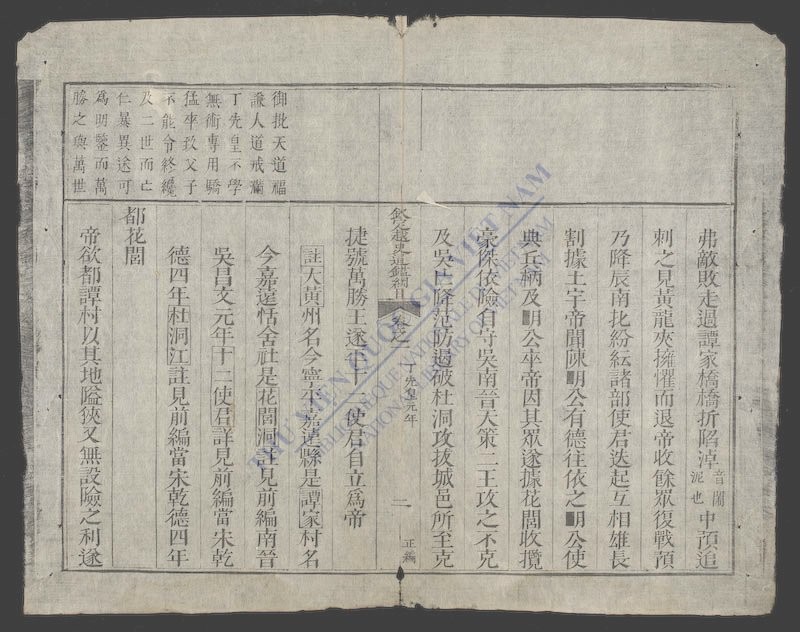 弗敵敗走過譚家橋橋折陷淖音閙泥也中預追
刺之見黃龍夾擁懼而退帝收餘眾復戰預
乃降辰南北紛紜諸部使君迭起互相雄長
割據土宇帝聞陳明公有德往依之明公使
典兵柄及明公卒帝因其眾遂據花閭收攬
豪傑依險自守吳南晉天策二王攻之不克
及吳亡降范防遏破杜洞攻拔城邑所至克
欽定越史通鑑綱目
卷之一
丁先皇元年
二
正編
捷號萬勝王遂平十二使君自立爲帝
註大黃州名今寧平嘉遠縣是譚家村名
今嘉遠恬舍社是花閭洞註見前編南晉
吳昌文元年十二使君詳見前編當宋乾
德四年杜洞江註見前編當宋乾德四年
都花閭
帝欲都譚村以其地隘狹又無設險之利遂
御批天道福
謙人道戒滿
丁先皇不學
無術專用驕
猛卒致父子
不能令終纔
及二世而亡
仁暴異途可
爲明鑒而萬
勝之與萬世
THƯ VIỆN QUỐC GIA VIỆT NAM
BIBLIOTHEQUE NATIONALE DU VIETNAM
NATIONAL LIBRARY OF VIETNAM